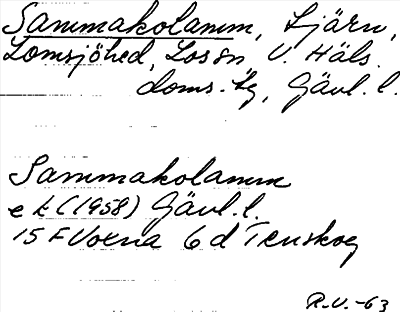 Sammakolamm, tjärn,
Lomsjöhed, Los sn V. Häls.
doms.-tg, Gävl. l.
Sammakolamm
e k (1958) Gävl. l.
15 F Voxna 6 d Tenskog
R.V. -63